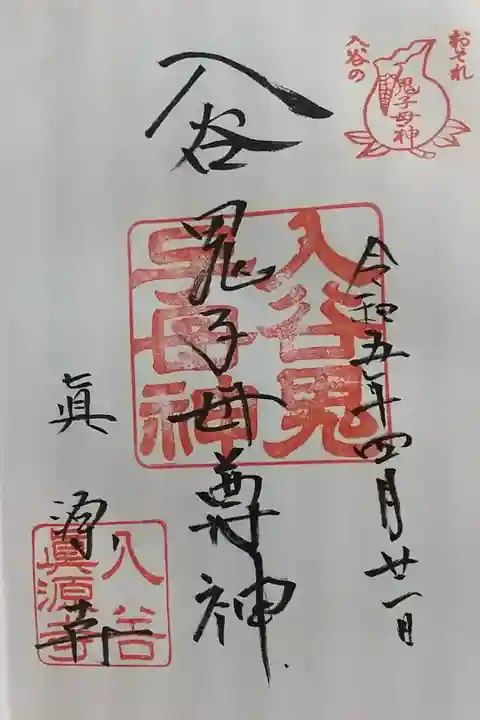 おそれ
入谷の
鬼子母神
令和五年四月廿一日
入谷鬼子母尊神
入谷鬼
子母神
眞源寺
入谷
眞源寺